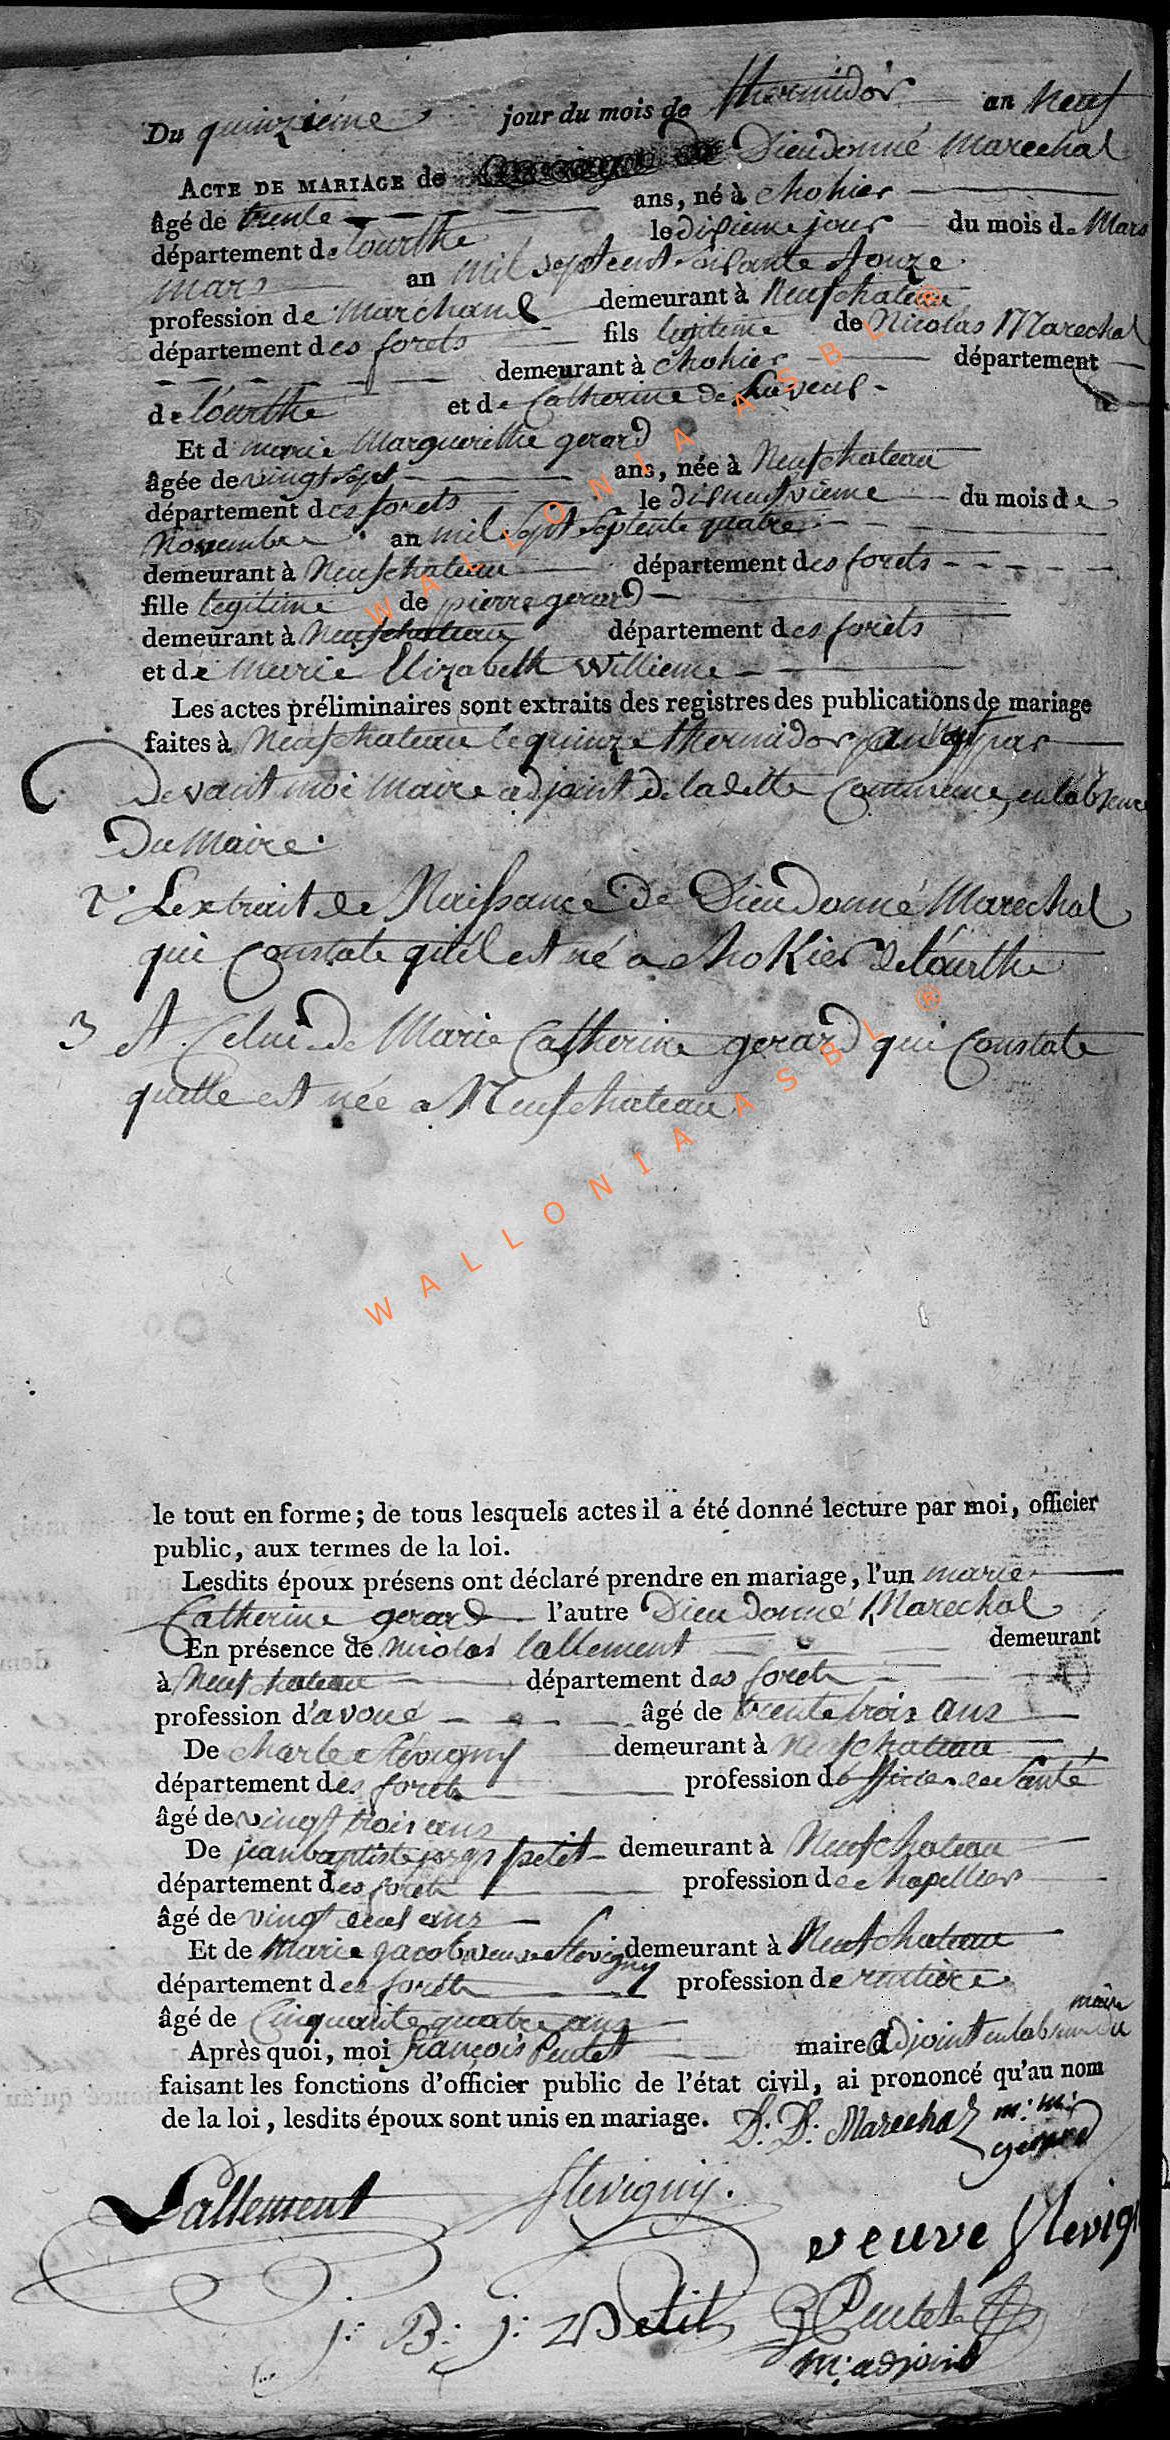 Du quinzième jour du mois de thermidor an neuf
ACTE DE MARIAGE de Dieudonné Marechal
âgé de trente ans, né à chokier
département de l'ourthe le dixieme jour du mois de Mars
mars an mil sept cent soisante et onze
profession de marchand demeurant à Neufchateau
département des forets fils legitime de Nicolas Marechal
demeurant à chokier département
de l'ourthe et de Catherine de
Et d marie Marguerithe gerard
âgée de vingt sept ans, née à Neufchateau
département des forets le disneufvieme du mois de
Novembre an mil sept septente quatre
demeurant à Neufchateau département des forets
fille legitime de pierre gerard
demeurant à Neufchateau département des forêts
et de marie Elizabeth Willieme
Les actes préliminaires sont extraits des registres des publications de mariage
faites à Neufchateau le quinze thermidor par
Devant moi maire adjoint de ladette Commune, en l'absence
Du Maire.
2° L'extrait de Naissance de Dieudonné Marechal
qui Constate qu'il est né a choKier de l'ourthe
3 et Celui de Marie Catherine gerard qui Constate
quelle est née a Neufchateau
WALLONIA ASBL ®
WALLONIA ASBL ®
le tout en forme; de tous lesquels actes il a été donné lecture par moi, officier
public, aux termes de la loi.
Lesdits époux présens ont déclaré prendre en mariage, l'un marie
Catherine gerard l'autre Dieudonné Marechal
En présence de nicolas lallement demeurant
à Neufchateau département des forets
profession d'avoué âgé de trente trois ans
De charle Stévigny demeurant à neufchateau
département des forets profession d'officier de Santé
âgé de vingt trois ans
De jean baptiste petit demeurant à Neufchateau
département des forets profession de chapellier
âgé de vingt ans
Et de Marie jacob veuve Stevigny demeurant à Neufchateau
département des forêts profession de rentiere
âgé de Cinquante quatre ans maire
Après quoi, moi françois Pentet maire adjoint en l'absence du
faisant les fonctions d'officier public de l'état civil, ai prononcé qu'au nom
de la loi, lesdits époux sont unis en mariage. D. D. Marechal m: m:
gerard
Lallement Stevigny.
veuve Stevig
j: B: j: Petit Pentet
m: adjoint